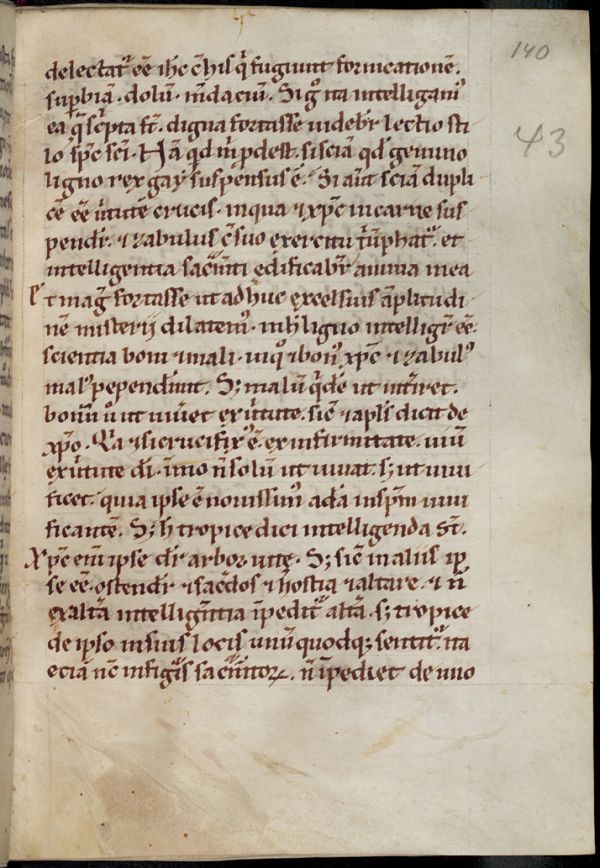 140
43
delectat᷑ eē ihc̄ c̄ hisq̄ fugiunt fornicationē.
suꝑbiā. dolū. m̄daciū. Sig̊ ita intelligam᷒
ea q̄ sc̄pta st̄. digna fortasse uidebr̄ lectio sti
lo sp̄c sc̄i. Nā qd̄ m̄ ꝓdest. si sciā qd̄ gemino
ligno rex gaẏ suspensus ē. Si aūt sciā dupli
cē eē ūtutē crucis. inqua ⁊ xp̄c incarne sus
pendr̄. ⁊ zabulus c̄ suo exercitu t̄ūphat᷑. et
intelligentia sac̄m̄ti ędificabr̄ anima mea
Et mag̅ fortasse ut adhuc excelsius āplitudi
nē misterij dilatem᷒. inh̄ ligno intelligr̄ eē.
scientia boni ⁊ mali. inq̊ ⁊ bon᷒ xp̄c ⁊ zabul᷒
mal᷒ pepender̄unt. S; malū q̄dē ut int̄iret.
bonū ū ut uiūet exūtute. sic̄ ⁊ apl̄s dicit de
xp̄o. Q̄a ⁊ si crucifix᷒ ē. ex infirmitate. uiū
exūtute dī. īmo n̄ solū ut uiuat. s; ut uiui
ficet. quia ipse ē nouissim᷒ adā insp̄m uiui
ficantē. S; h̄ tropice dici intelligenda st̄.
Xp̄c eni᷑ ipse dr̄ arbor uitę. S; sic̄ malus ip
se eē. ostendr̄ ⁊ sac̄dos ⁊ hostia ⁊ altare. ⁊ n̄
exaltā intelligēntia īpedit᷑ altā. s; tropice
de ipso insuis locis unū quodq; sentit᷑. ita
eciā nc̄ infigīs sac̄m̄torꝝ. n̄ īpediet de uno